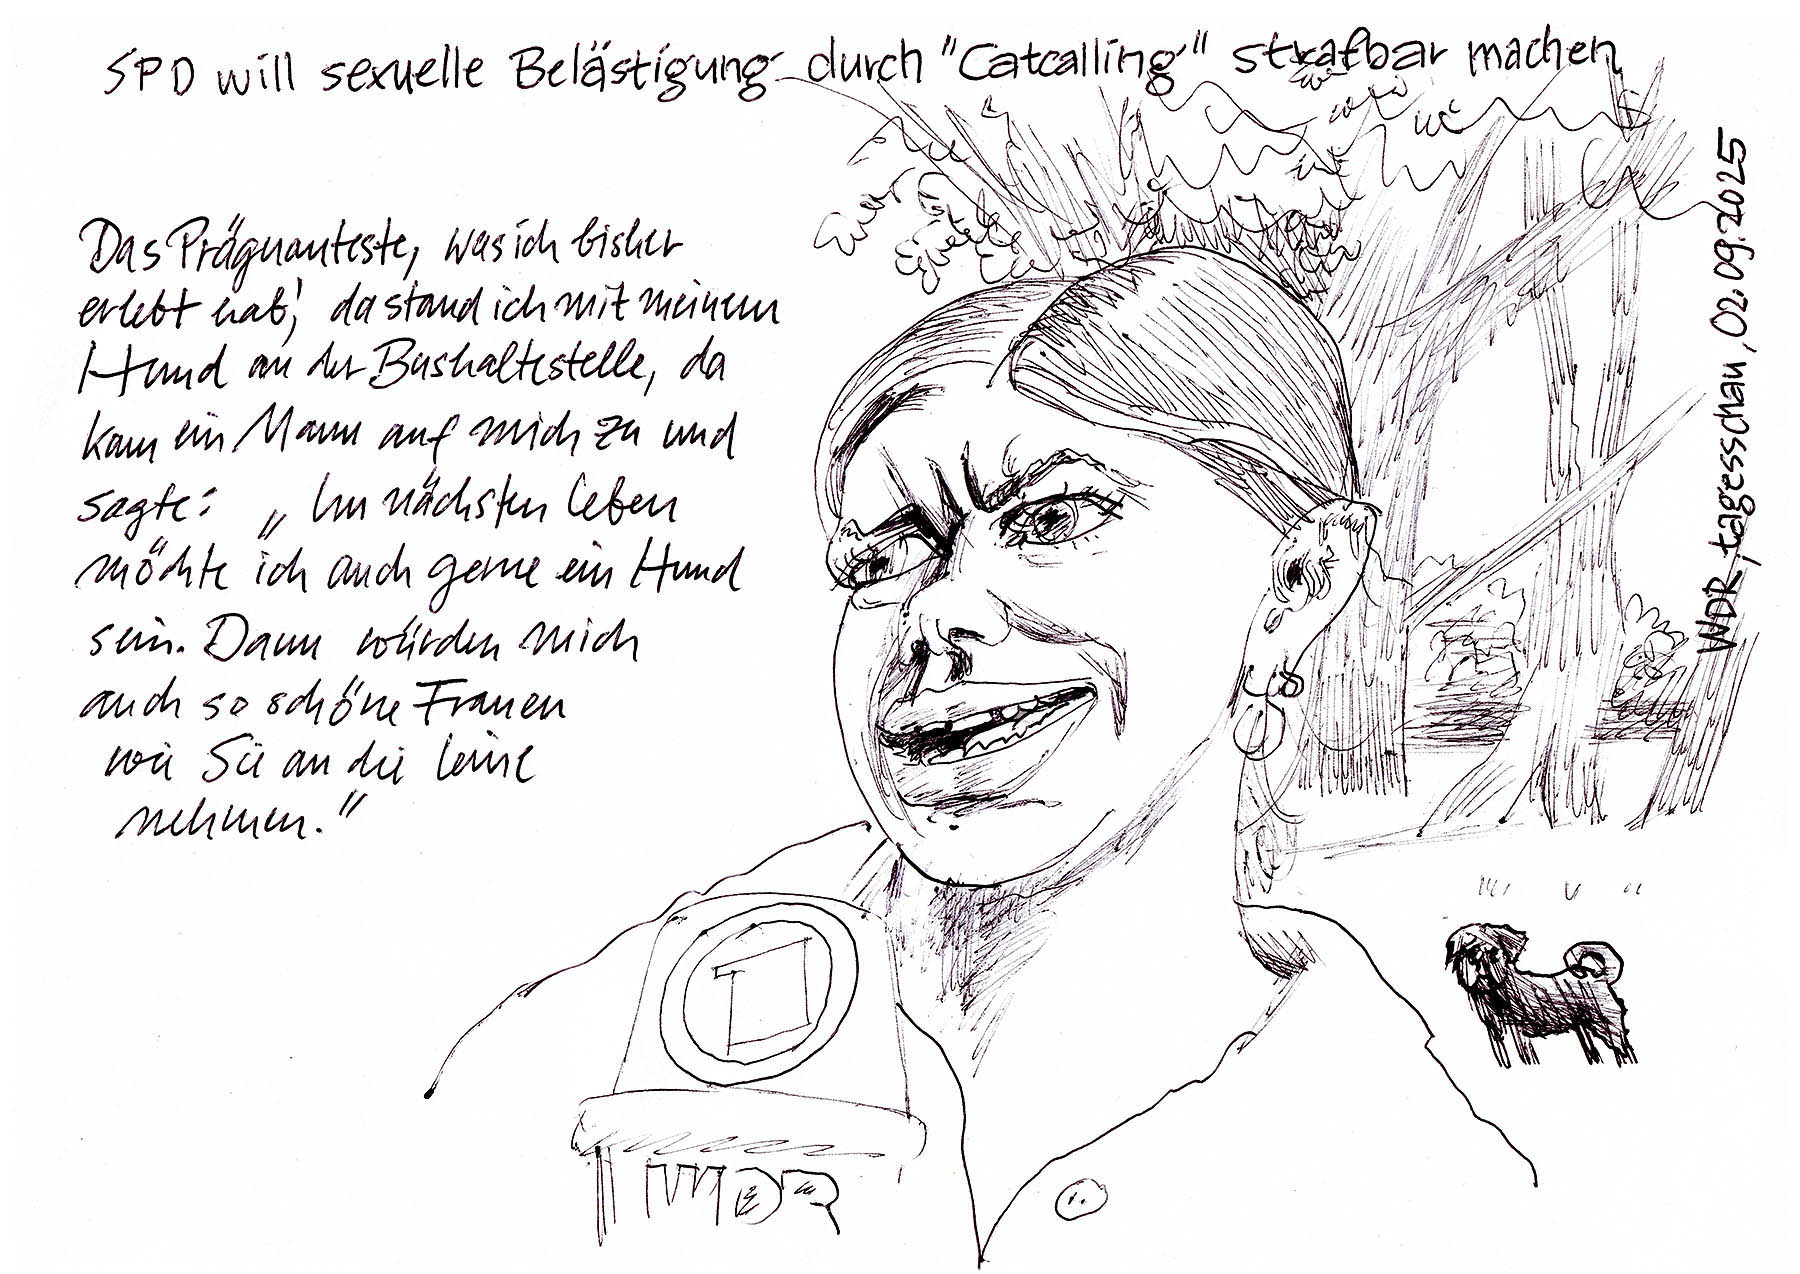 SPD will sexuelle Belästigung durch "Catcalling" strafbar machen
Das Prägnanteste, was ich bisher
erlebt hab', da stand ich mit meinem
Hund an der Bushaltestelle, da
kam ein Mann auf mich zu und
sagte: „Im nächsten Leben
möchte ich auch gerne ein Hund
sein. Dann würden mich
auch so schöne Frauen
wie Sie an die Leine
nehmen."
WDR, tagesschau, 02.09.2025
WDR